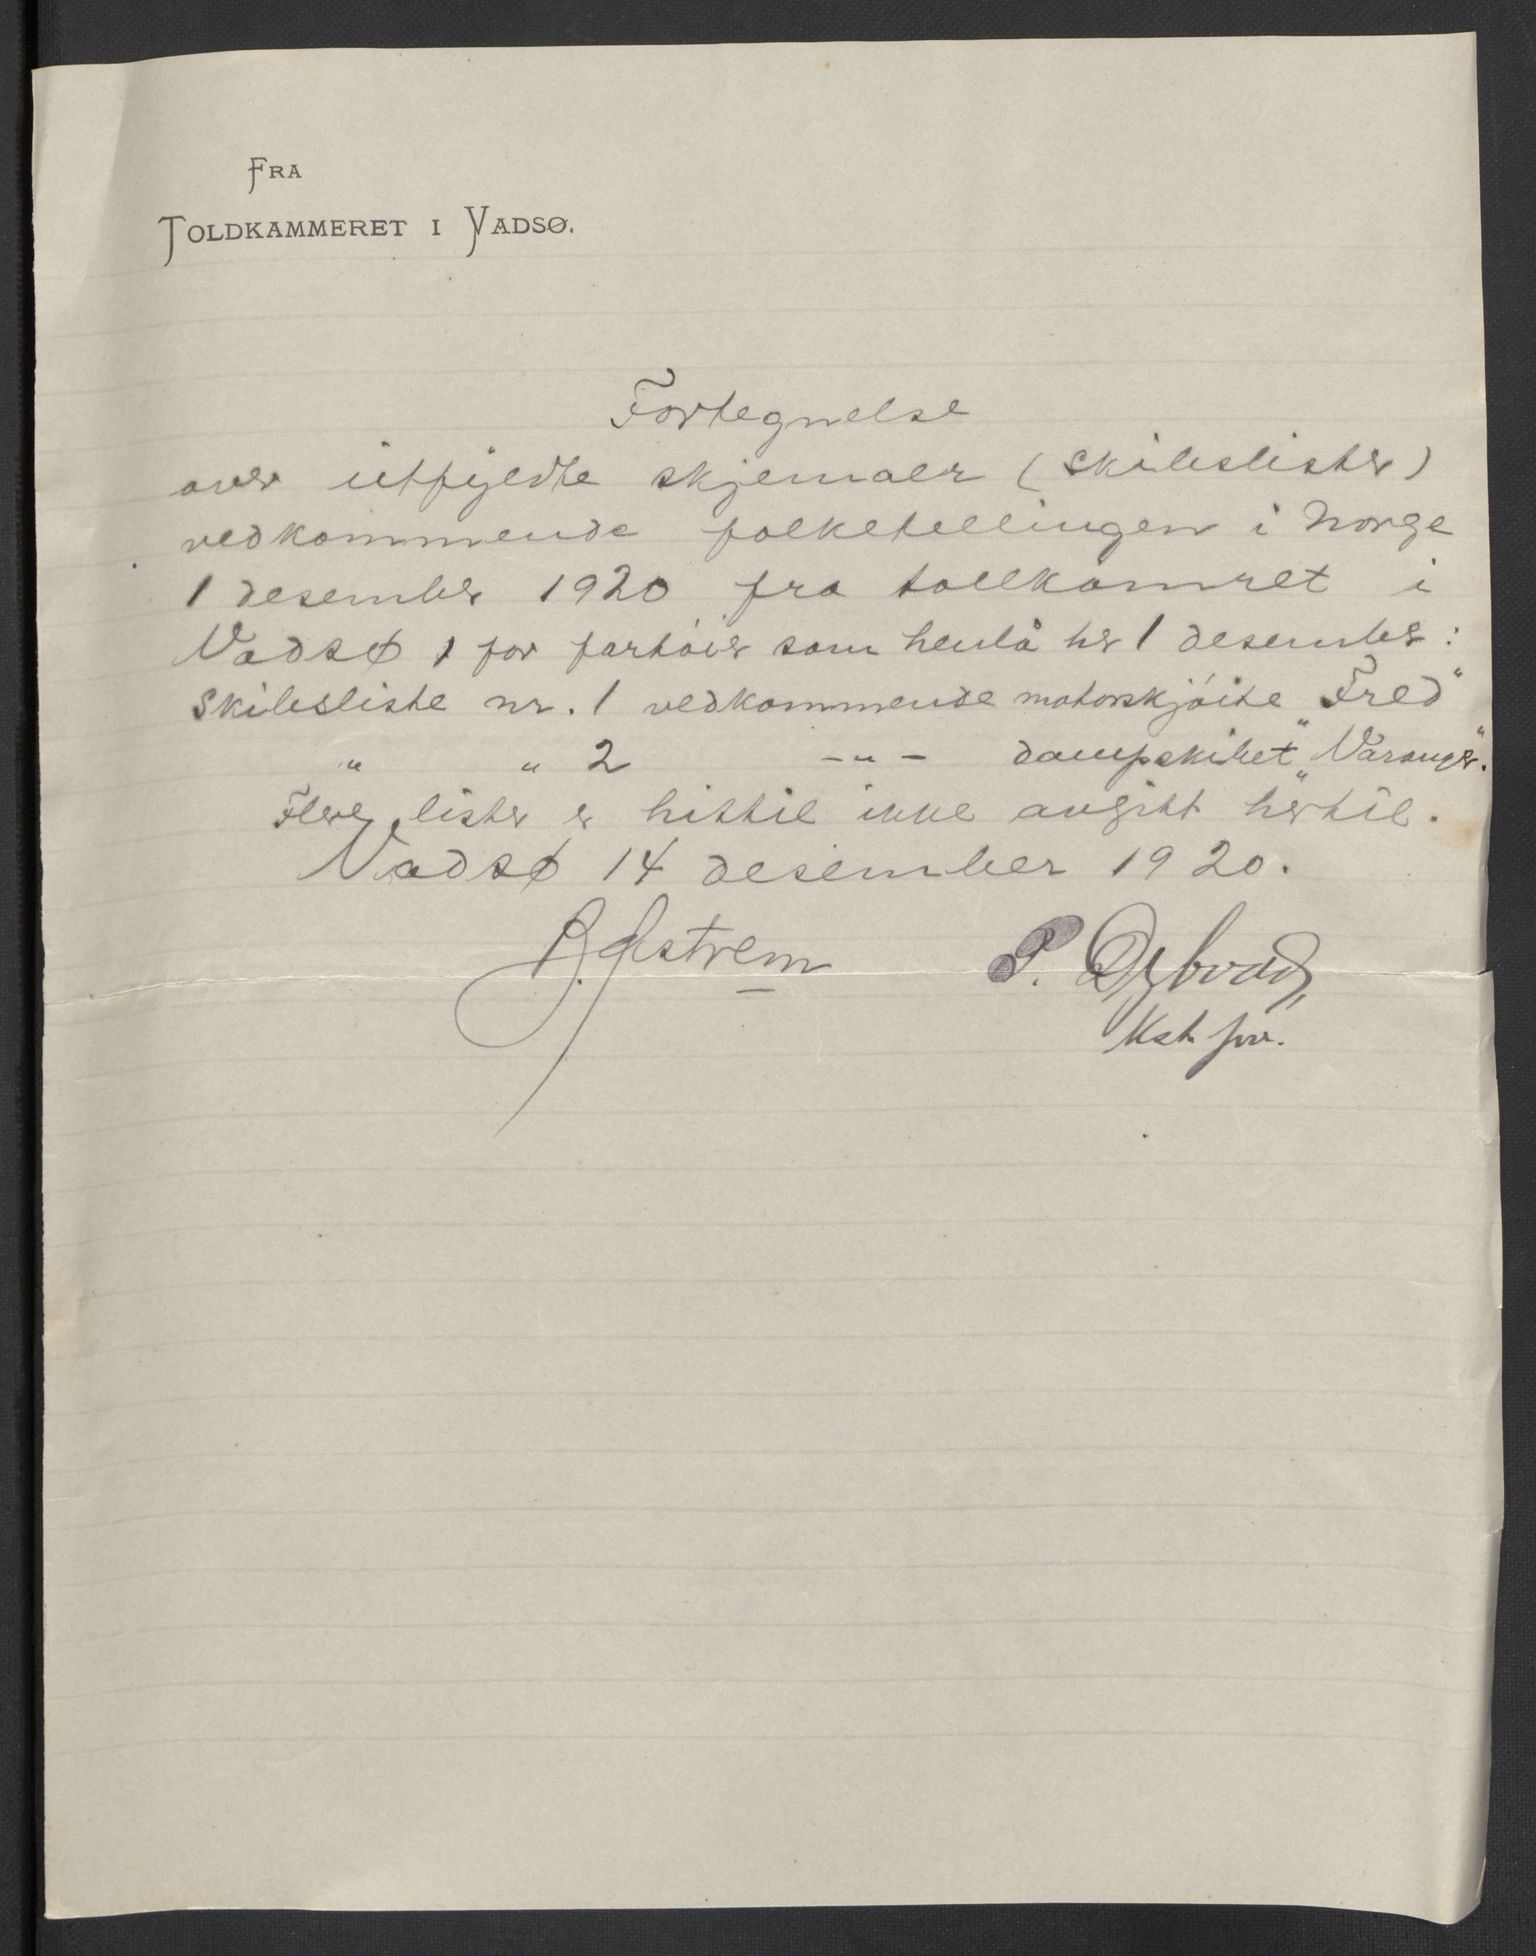 FRA
TOLDKAMMERET I VADSØ.
Fortegnelse
over utfyldte skjemaer (skibslister)
vedkommende folketellingen i Norge
1 desember 1920 fra tollkamret i
Vadsø, for fartøier som henlå her 1 desember:
Skibsliste nr. 1 vedkommende motorskjøite "Fred"
" " 2 -"- dampskibet "Varanger".
Flere lister er hittil ikke avgitt hertil.
Vadsø 14 desember 1920.
P. Dybvad,
Kst. forv.